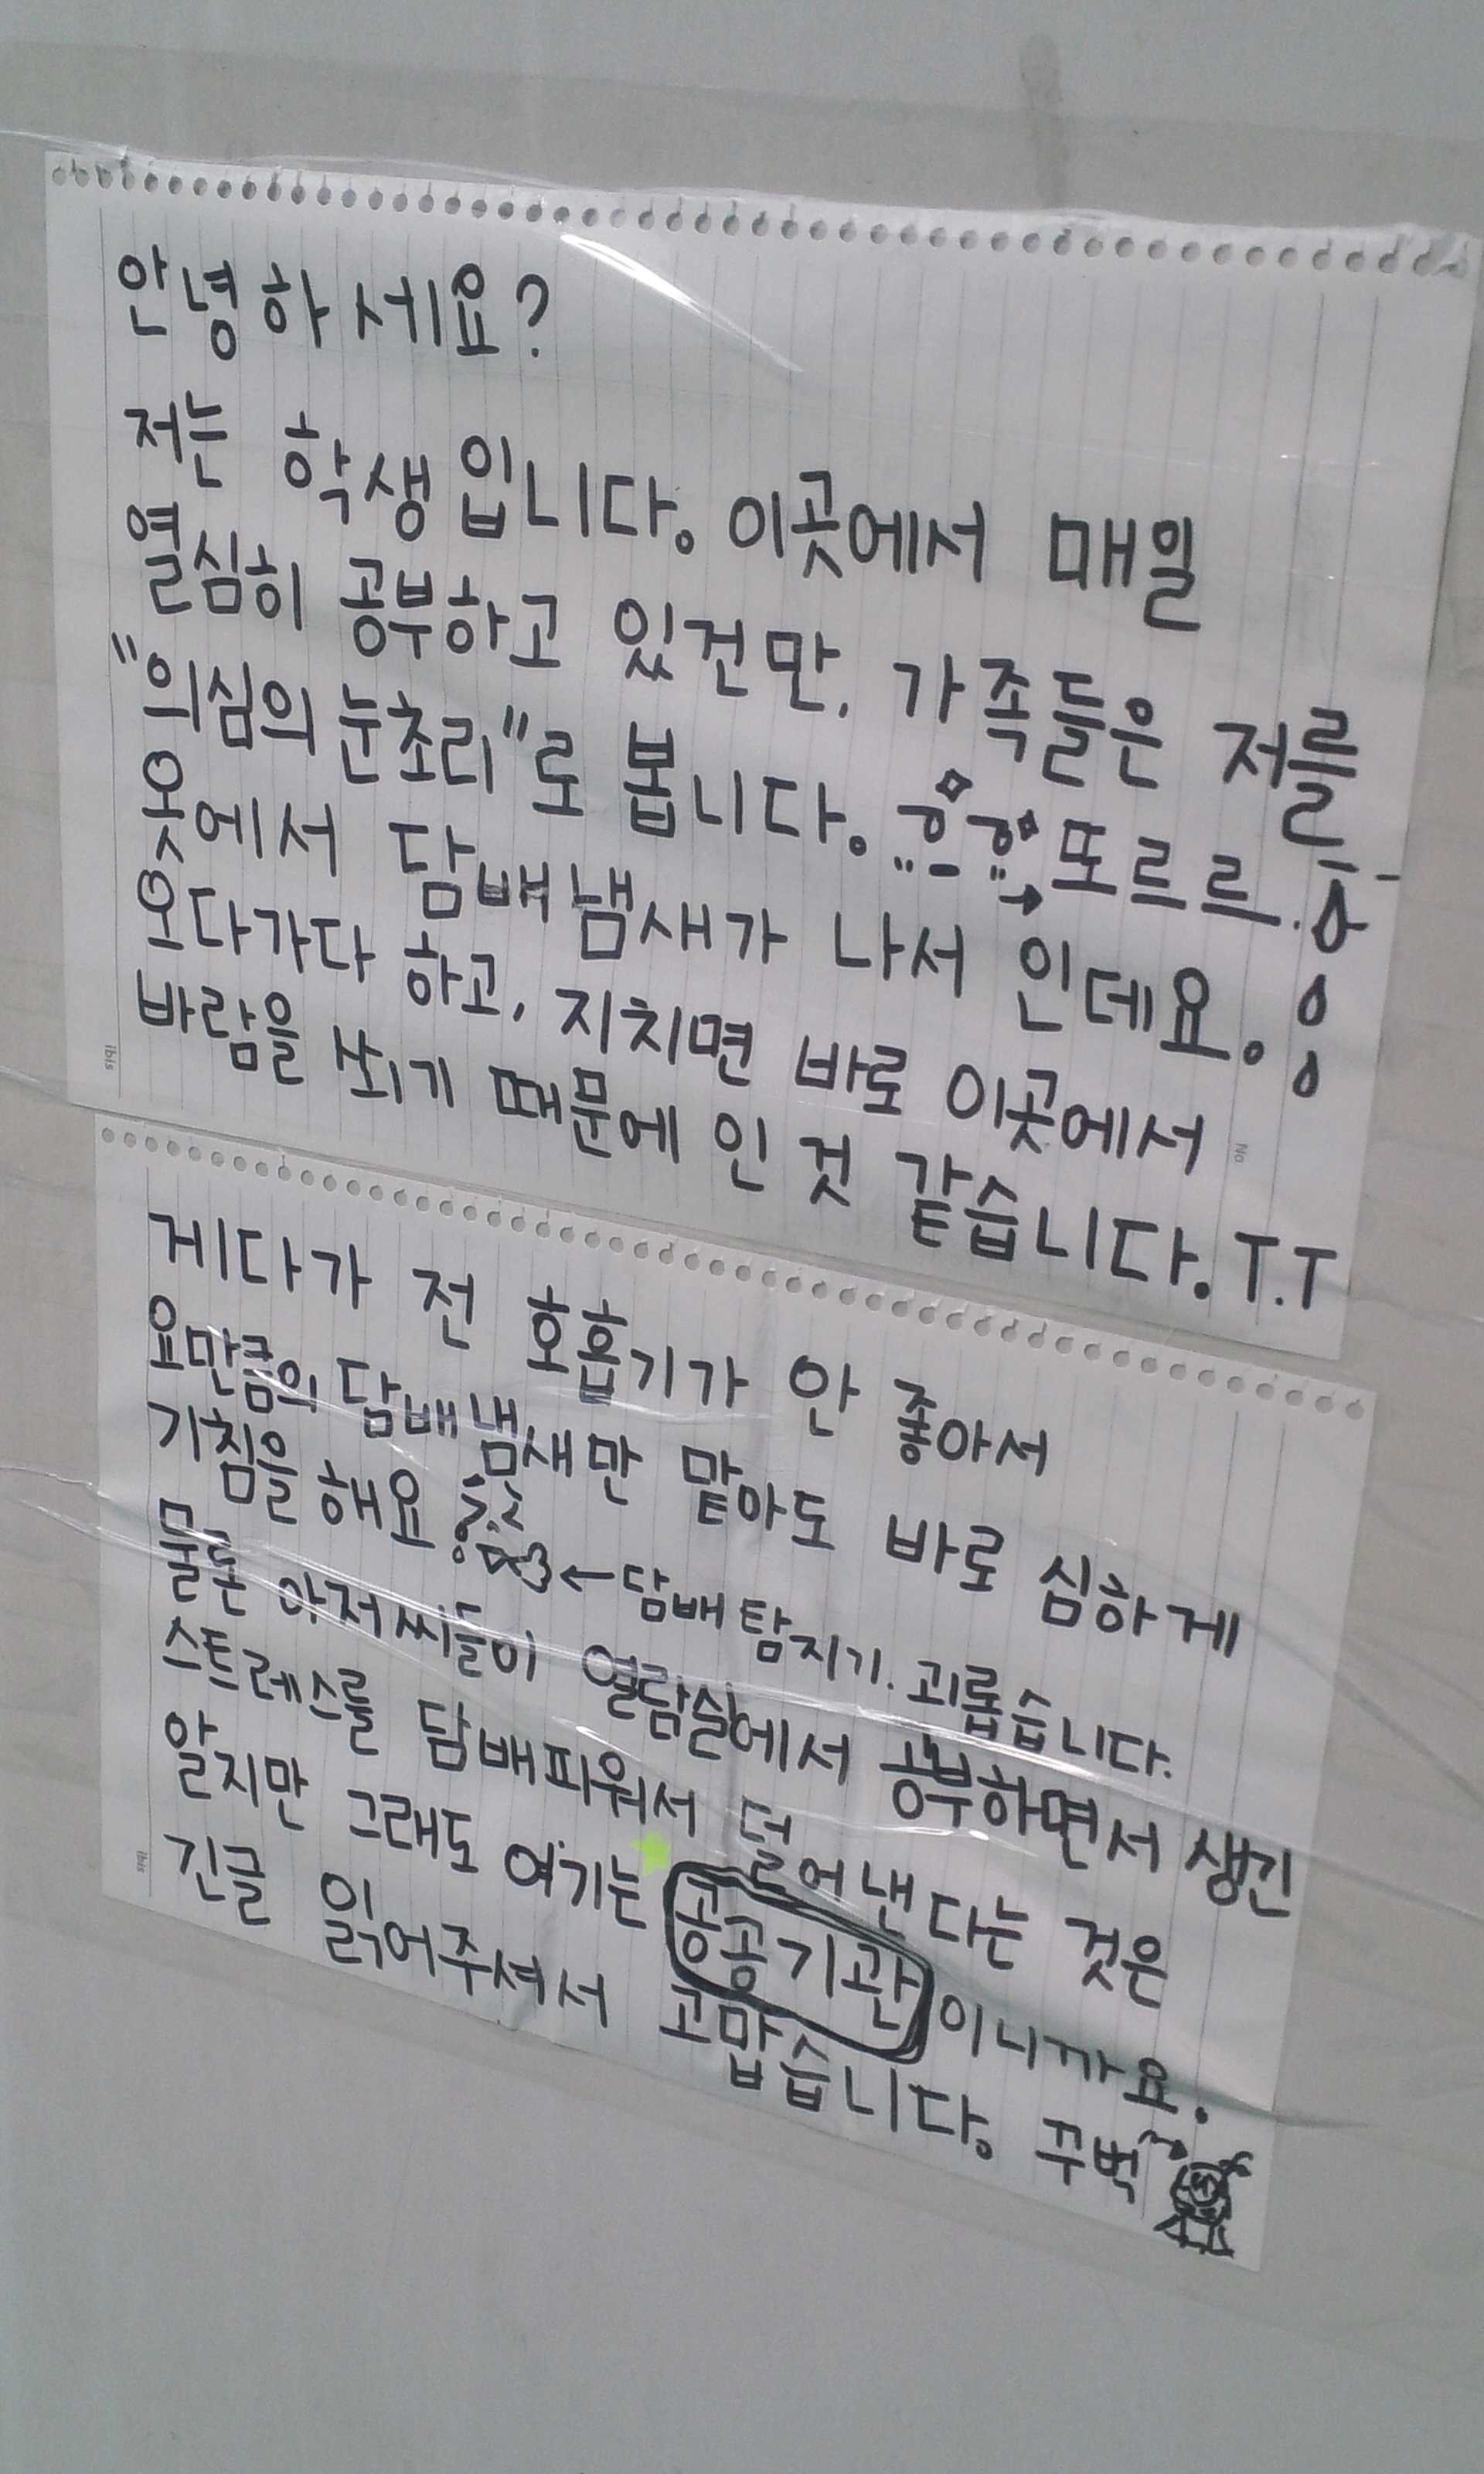 안녕하세요?
저는 학생입니다. 이곳에서 매일
열심히 공부하고 있건만, 가족들은 저를
"의심의 눈초리"로 봅니다. 또르르..
옷에서 담배냄새가 나서 인데요.
오다가다 하고, 지치면 바로 이곳에서
바람을 쐬기 때문에 인 것 같습니다. T.T
ibis
No
게다가 전 호흡기가 안 좋아서
요만큼의 담배냄새만 맡아도 바로 심하게
기침을 해요. ←담배탐지기. 괴롭습니다.
물론 아저씨들이 열람실에서 공부하면서 생긴
스트레스를 담배피워서 덜어낸다는 것은
알지만 그래도 여기는 공공기관이니까요.
긴글 읽어주셔서 고맙습니다. 꾸벅
ibis